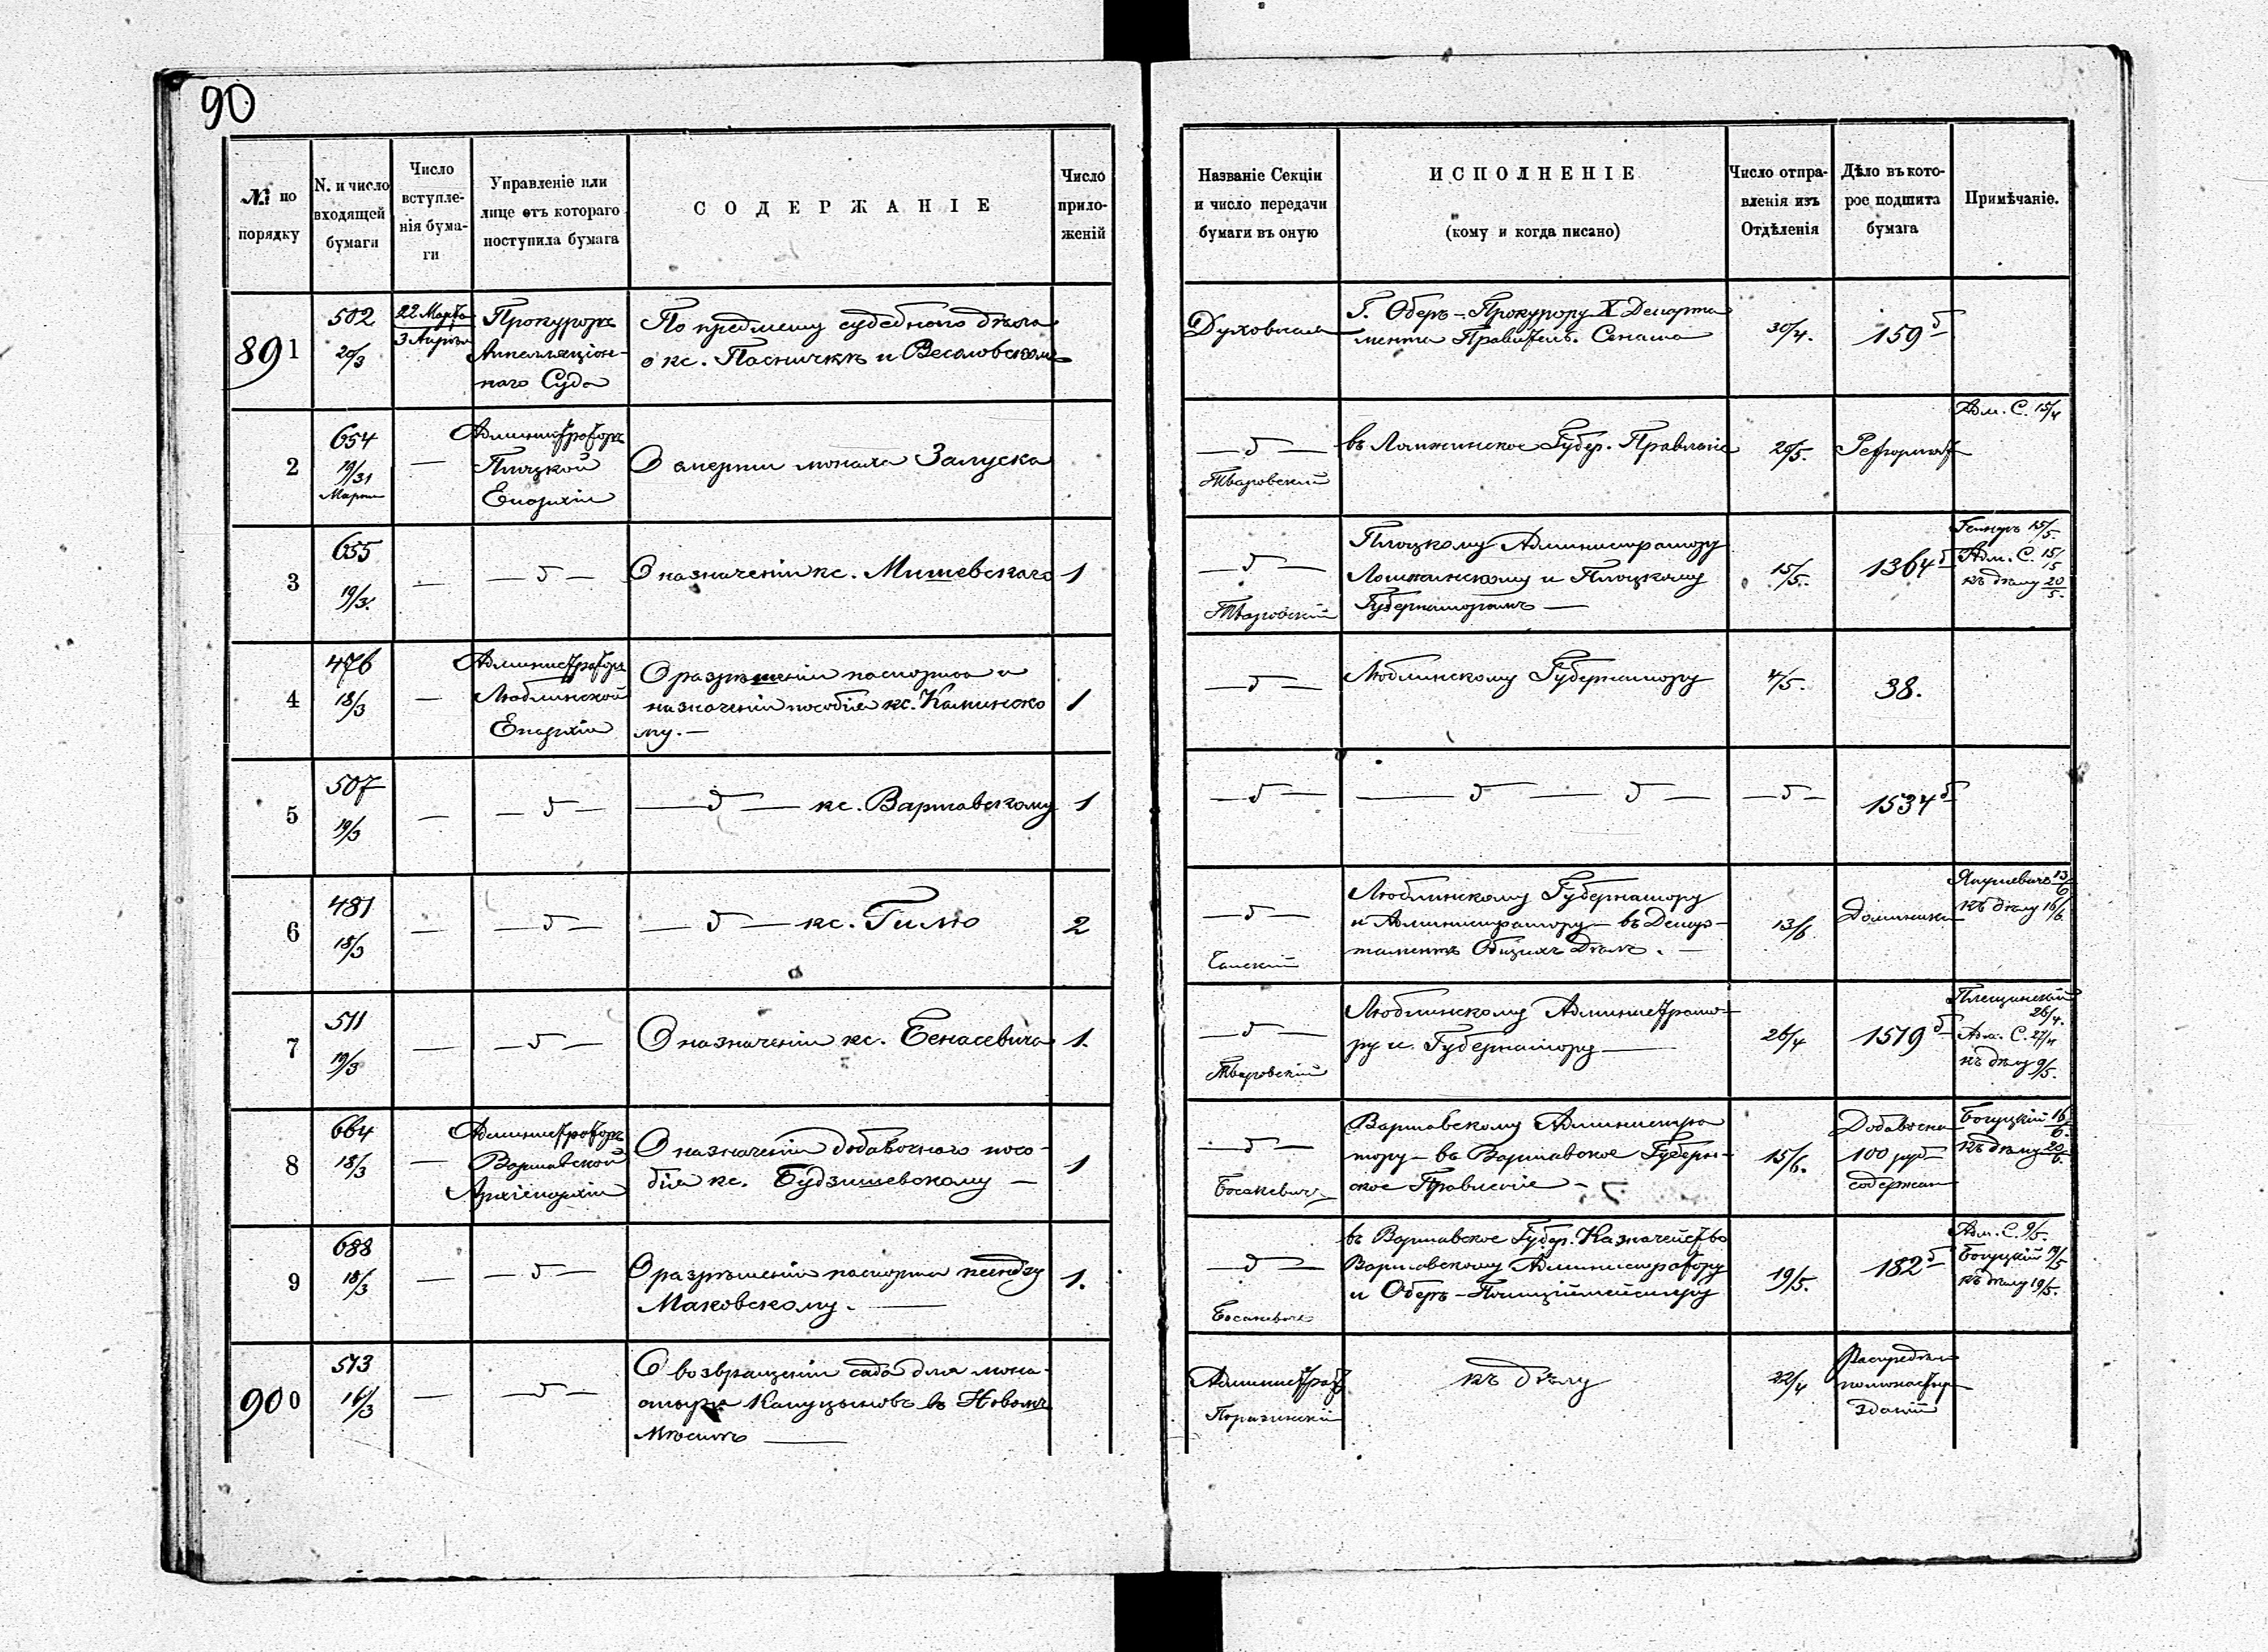 90
№ по порядку
N. и число входящей бумаги
Число вступле-
нія бума-
ги
Управленіе или
лице отъ котораго
поступила бумага
СОДЕРЖАНІЕ
Число
прило-
женій
Названіе Секціи
и число передачи
бумаги въ оную
ИСПОЛНЕНІЕ
(кому и когда писано)
Число отпра-
вленія изъ
Отдѣленія
Дѣло въ кото-
рое подшита
бумага
Примѣчаніе.
891
502
20/3
22 Марта
3 Апрѣля
Прокуроръ
Аппелляціон-
наго Суда
По предмету судебнаго дѣла
о кс. Пасничкѣ и Весоловскомъ
Духовная
Г. Оберъ-Прокурору X Департа
мента Правител. Сената
30/4.
159 б
2
654
19/31
Марта
—
Администраторъ
Плоцкой
Епархіи
О смерти монаха Залуска
— д —
Тваровскій
въ Ломжинское Губер. Правленіе
29/5.
Реформат
Адм. С. 15/4
3
655
19/3.
—
— д —
О назначеніи кс. Мишевскаго
1
— д —
Тваровскій
Плоцкому Администратору
Ломжинскому и Плоцкому
Губернаторамъ —
15/5.
1364 б
15/5.
Адм. С. 15/5
къ дѣлу 20/5.
4
476
18/3
—
Администраторъ
Люблинской
Епархіи
О разрѣшеніи паспорта и
назначеніи пособія кс. Каминско
му. —
1
— д —
Люблинскому Губернатору
4/5.
38.
5
507
19/3
—
— д —
— д — кс. Варшавскому
1
— д —
— д — д —
— д —
1534 б
6
481
18/3
—
— д —
— д — кс. Гилю
2
— д —
Люблинскому Губернатору
и Администратору — въ Депар-
таментъ Общихъ Дѣлъ. —
13/6
Доминика
Янушевичъ 13/6
къ дѣлу 16/6.
7
511
19/3
—
— д —
О назначеніи кс. Бенасевича
1.
— д —
Тваровскій
Люблинскому Администрато-
ру и Губернатору —
26/4
1519 б
Плещинскій
26/4.
Адм. С. 27/4
къ дѣлу 9/5.
8
664
18/3
—
Администраторъ
Варшавской
Архіепархіи
О назначеніи добавочнаго посо-
бія кс. Будзишевскому —
1
— д —
Босакевичъ
Варшавскому Администра
тору — въ Варшавское Губерн-
ское Правленіе —
15/6.
Добавочна
100 руб
содержан
Богуцкій 16/6.
къ дѣлу 20/6.
9
688
18/3
—
— д —
О разрѣшеніи паспорта ксендзу
Маковскому. —
1.
— д —
Босакевичъ
въ Варшавское Губер. Казначейство
Варшавскому Администратору
и Оберъ-Полиціймейстеру
19/5.
182 б
Адм. С. 9/5.
Богуцкій 19/5
къ дѣлу 19/5.
900
513
16/3
—
— д —
О возвращеніи сада для мона-
стыря Капуциновъ въ Новомъ
Мѣстѣ —
Администрат
къ дѣлу
22/4
Распредѣлен
помонастыр
зданій